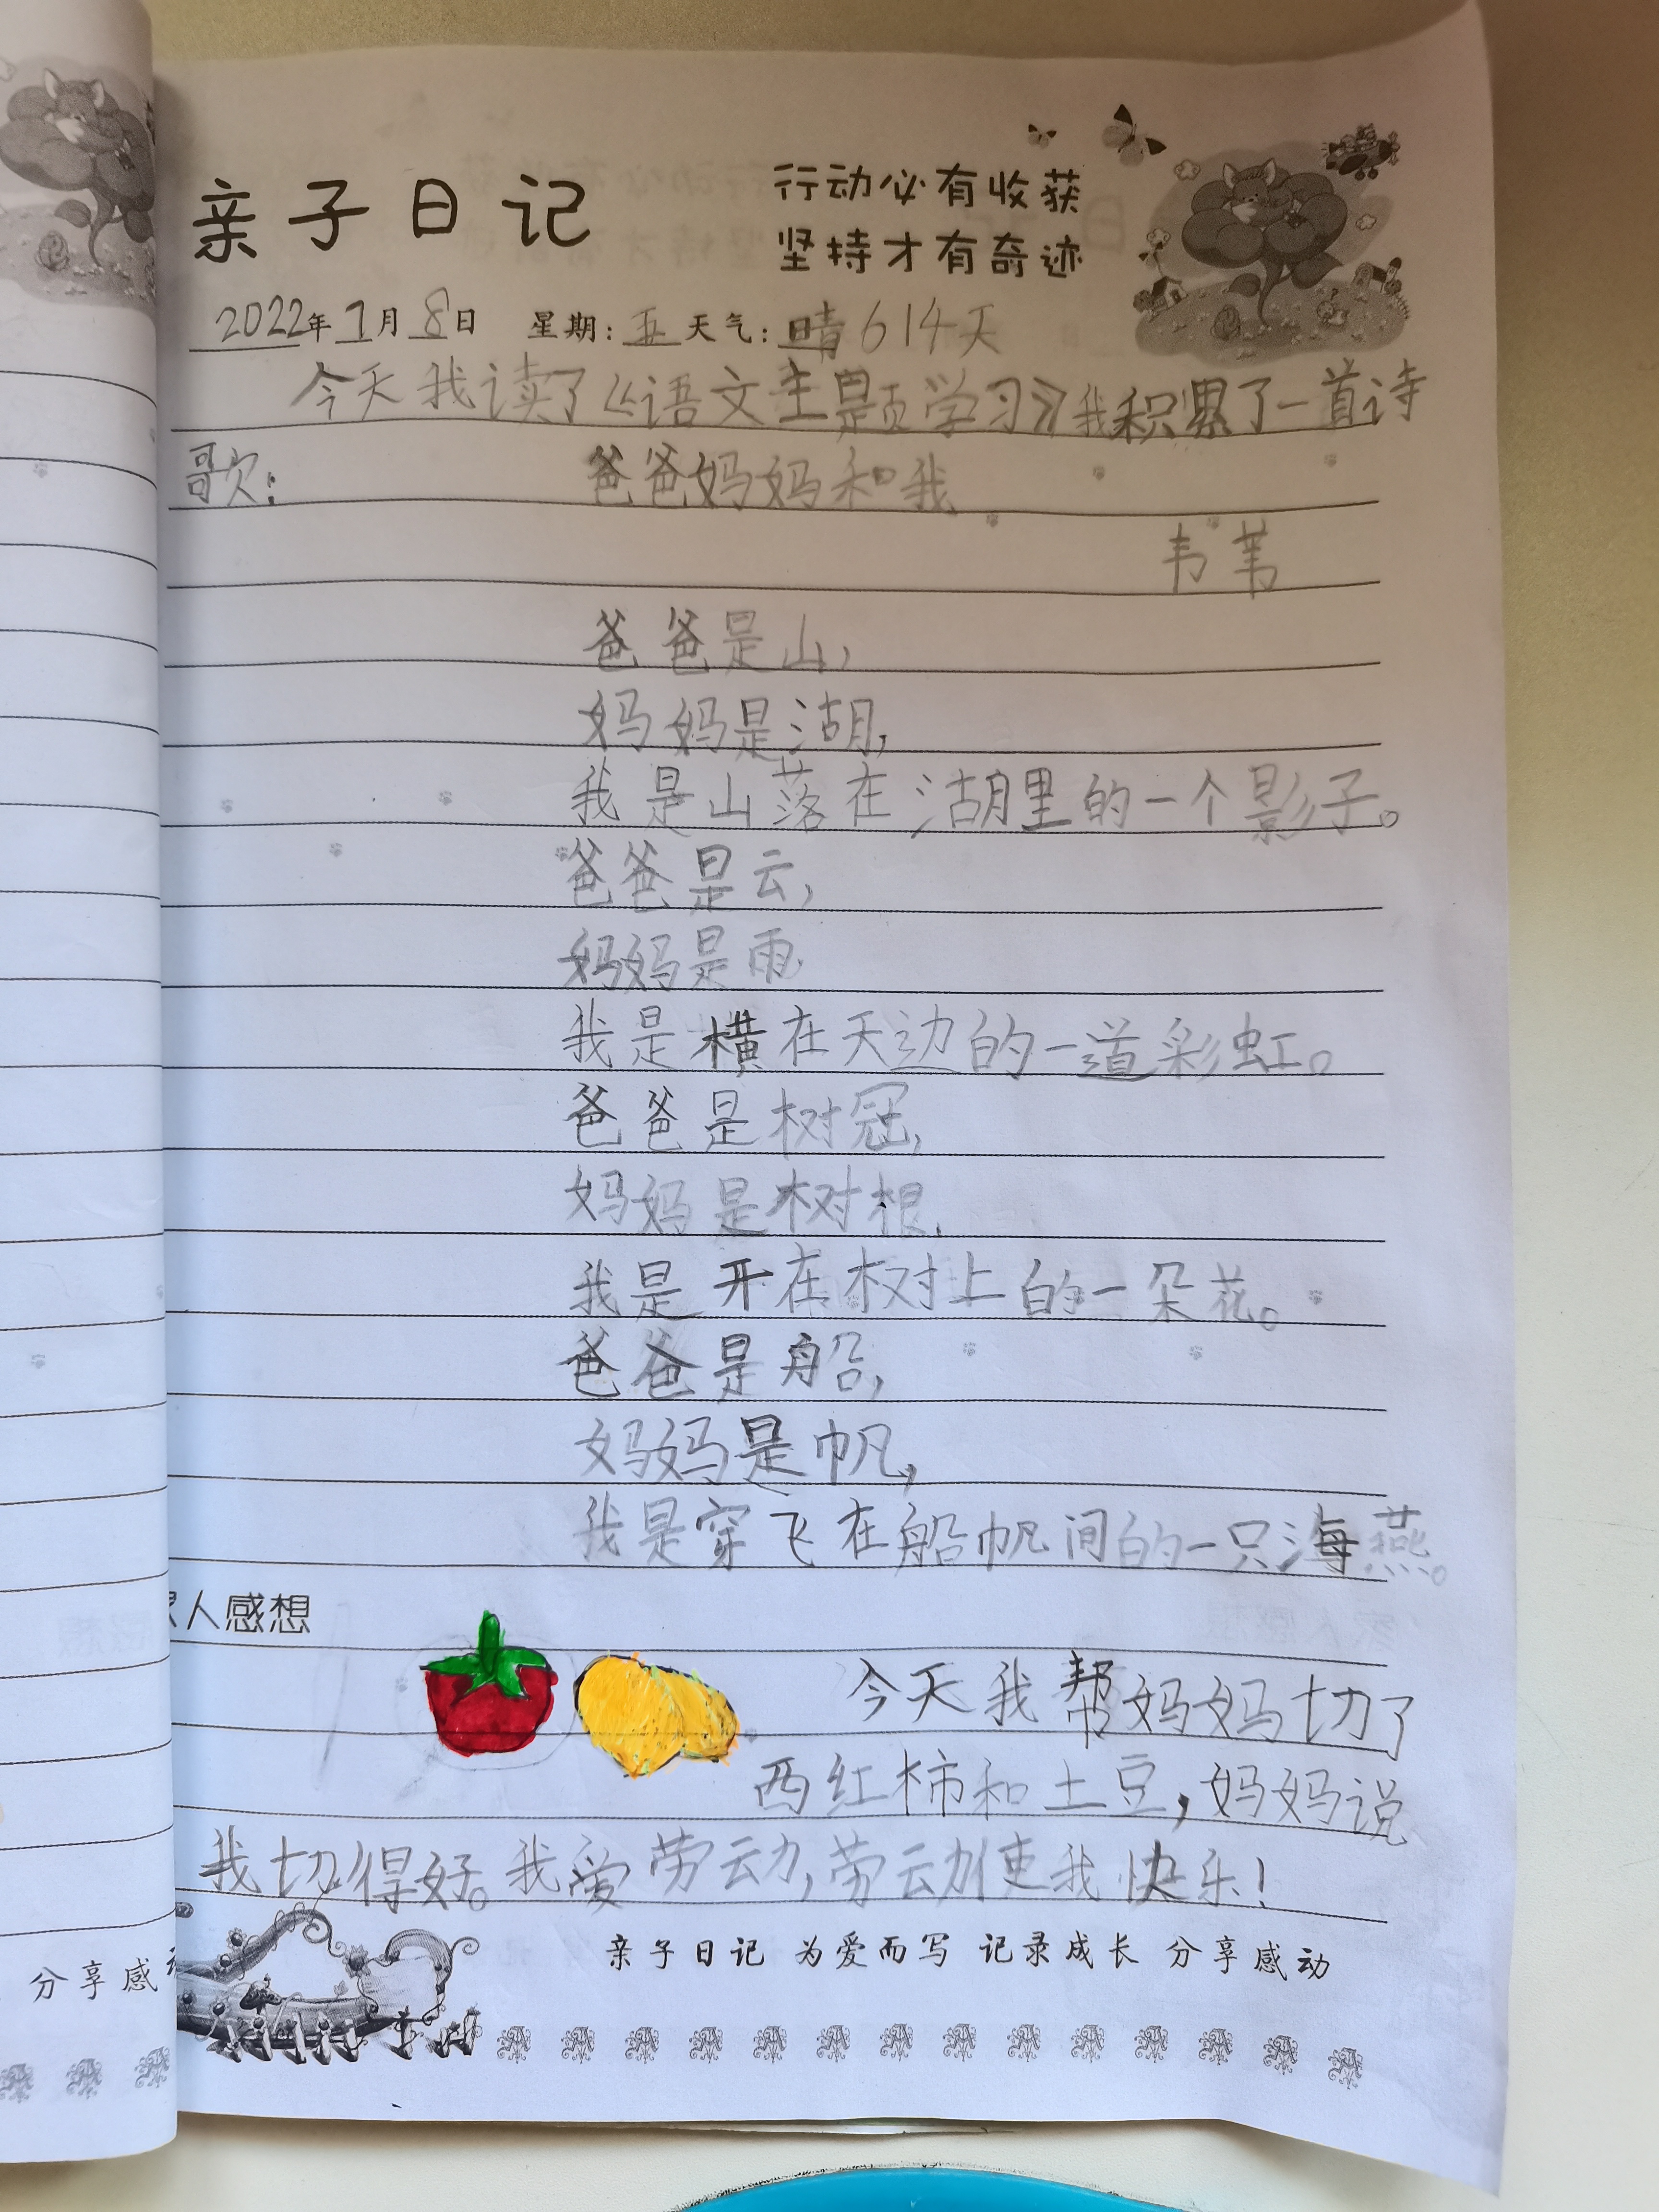 亲子日记
行动必有收获
坚持才有奇迹
2022年7月8日 星期:五 天气:晴 614天
今天我读了《语文主题学习》我积累了一首诗
歌:
爸爸妈妈和我
韦苇
爸爸是山,
妈妈是湖,
我是山落在湖里的一个影子。
爸爸是云,
妈妈是雨
我是横在天边的一道彩虹。
爸爸是树冠,
妈妈是树根,
我是开在树上的一朵花。
爸爸是船,
妈妈是帆,
我是穿飞在船帆间的一只海燕。
家人感想
今天我帮妈妈切了
西红柿和土豆,妈妈说
我切得好。我爱劳动,劳动使我快乐!
亲子日记 为爱而写 记录成长 分享感动
分享感动